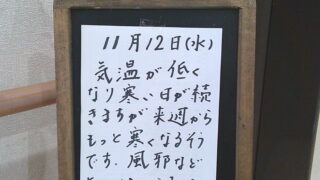 11月12日(水)
気温が低く
なり寒い日が続
きますが来週から
もっと寒くなるそう
です。風邪など